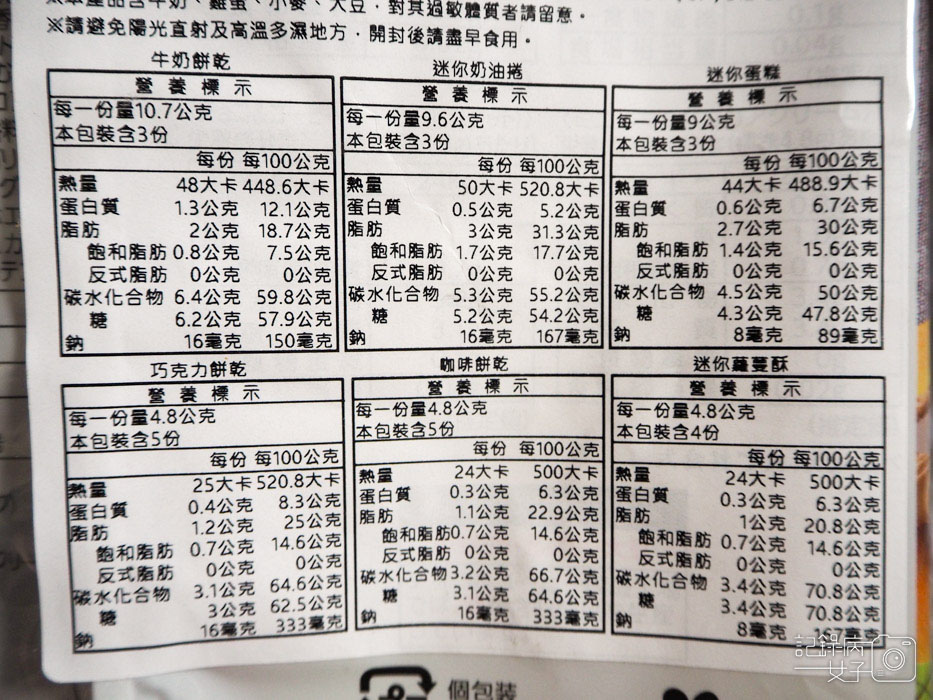 ※本產品含牛奶、雞蛋、小麥、大豆，對其過敏體質者請留意。
※請避免陽光直射及高溫多濕地方，開封後請盡早食用。
牛奶餅乾
營養標示
每一份量10.7公克
本包裝含3份
每份 每100公克
熱量 48大卡 448.6大卡
蛋白質 1.3公克 12.1公克
脂肪 2公克 18.7公克
飽和脂肪 0.8公克 7.5公克
反式脂肪 0公克 0公克
碳水化合物 6.4公克 59.8公克
糖 6.2公克 57.9公克
鈉 16毫克 150毫克
迷你奶油捲
營養標示
每一份量9.6公克
本包裝含3份
每份 每100公克
熱量 50大卡 520.8大卡
蛋白質 0.5公克 5.2公克
脂肪 3公克 31.3公克
飽和脂肪 1.7公克 17.7公克
反式脂肪 0公克 0公克
碳水化合物 5.3公克 55.2公克
糖 5.2公克 54.2公克
鈉 16毫克 167毫克
迷你蛋糕
營養標示
每一份量9公克
本包裝含3份
每份 每100公克
熱量 44大卡 488.9大卡
蛋白質 0.6公克 6.7公克
脂肪 2.7公克 30公克
飽和脂肪 1.4公克 15.6公克
反式脂肪 0公克 0公克
碳水化合物 4.5公克 50公克
糖 4.3公克 47.8公克
鈉 8毫克 89毫克
巧克力餅乾
營養標示
每一份量4.8公克
本包裝含5份
每份 每100公克
熱量 25大卡 520.8大卡
蛋白質 0.4公克 8.3公克
脂肪 1.2公克 25公克
飽和脂肪 0.7公克 14.6公克
反式脂肪 0公克 0公克
碳水化合物 3.1公克 64.6公克
糖 3公克 62.5公克
鈉 16毫克 333毫克
咖啡餅乾
營養標示
每一份量4.8公克
本包裝含5份
每份 每100公克
熱量 24大卡 500大卡
蛋白質 0.3公克 6.3公克
脂肪 1.1公克 22.9公克
飽和脂肪 0.7公克 14.6公克
反式脂肪 0公克 0公克
碳水化合物 3.2公克 66.7公克
糖 3.1公克 64.6公克
鈉 16毫克 333毫克
迷你蘿蔓酥
營養標示
每一份量4.8公克
本包裝含4份
每份 每100公克
熱量 24大卡 500大卡
蛋白質 0.3公克 6.3公克
脂肪 1公克 20.8公克
飽和脂肪 0.7公克 14.6公克
反式脂肪 0公克 0公克
碳水化合物 3.4公克 70.8公克
糖 3.4公克 70.8公克
鈉 8毫克 167毫克
記錄病
女子
個包裝